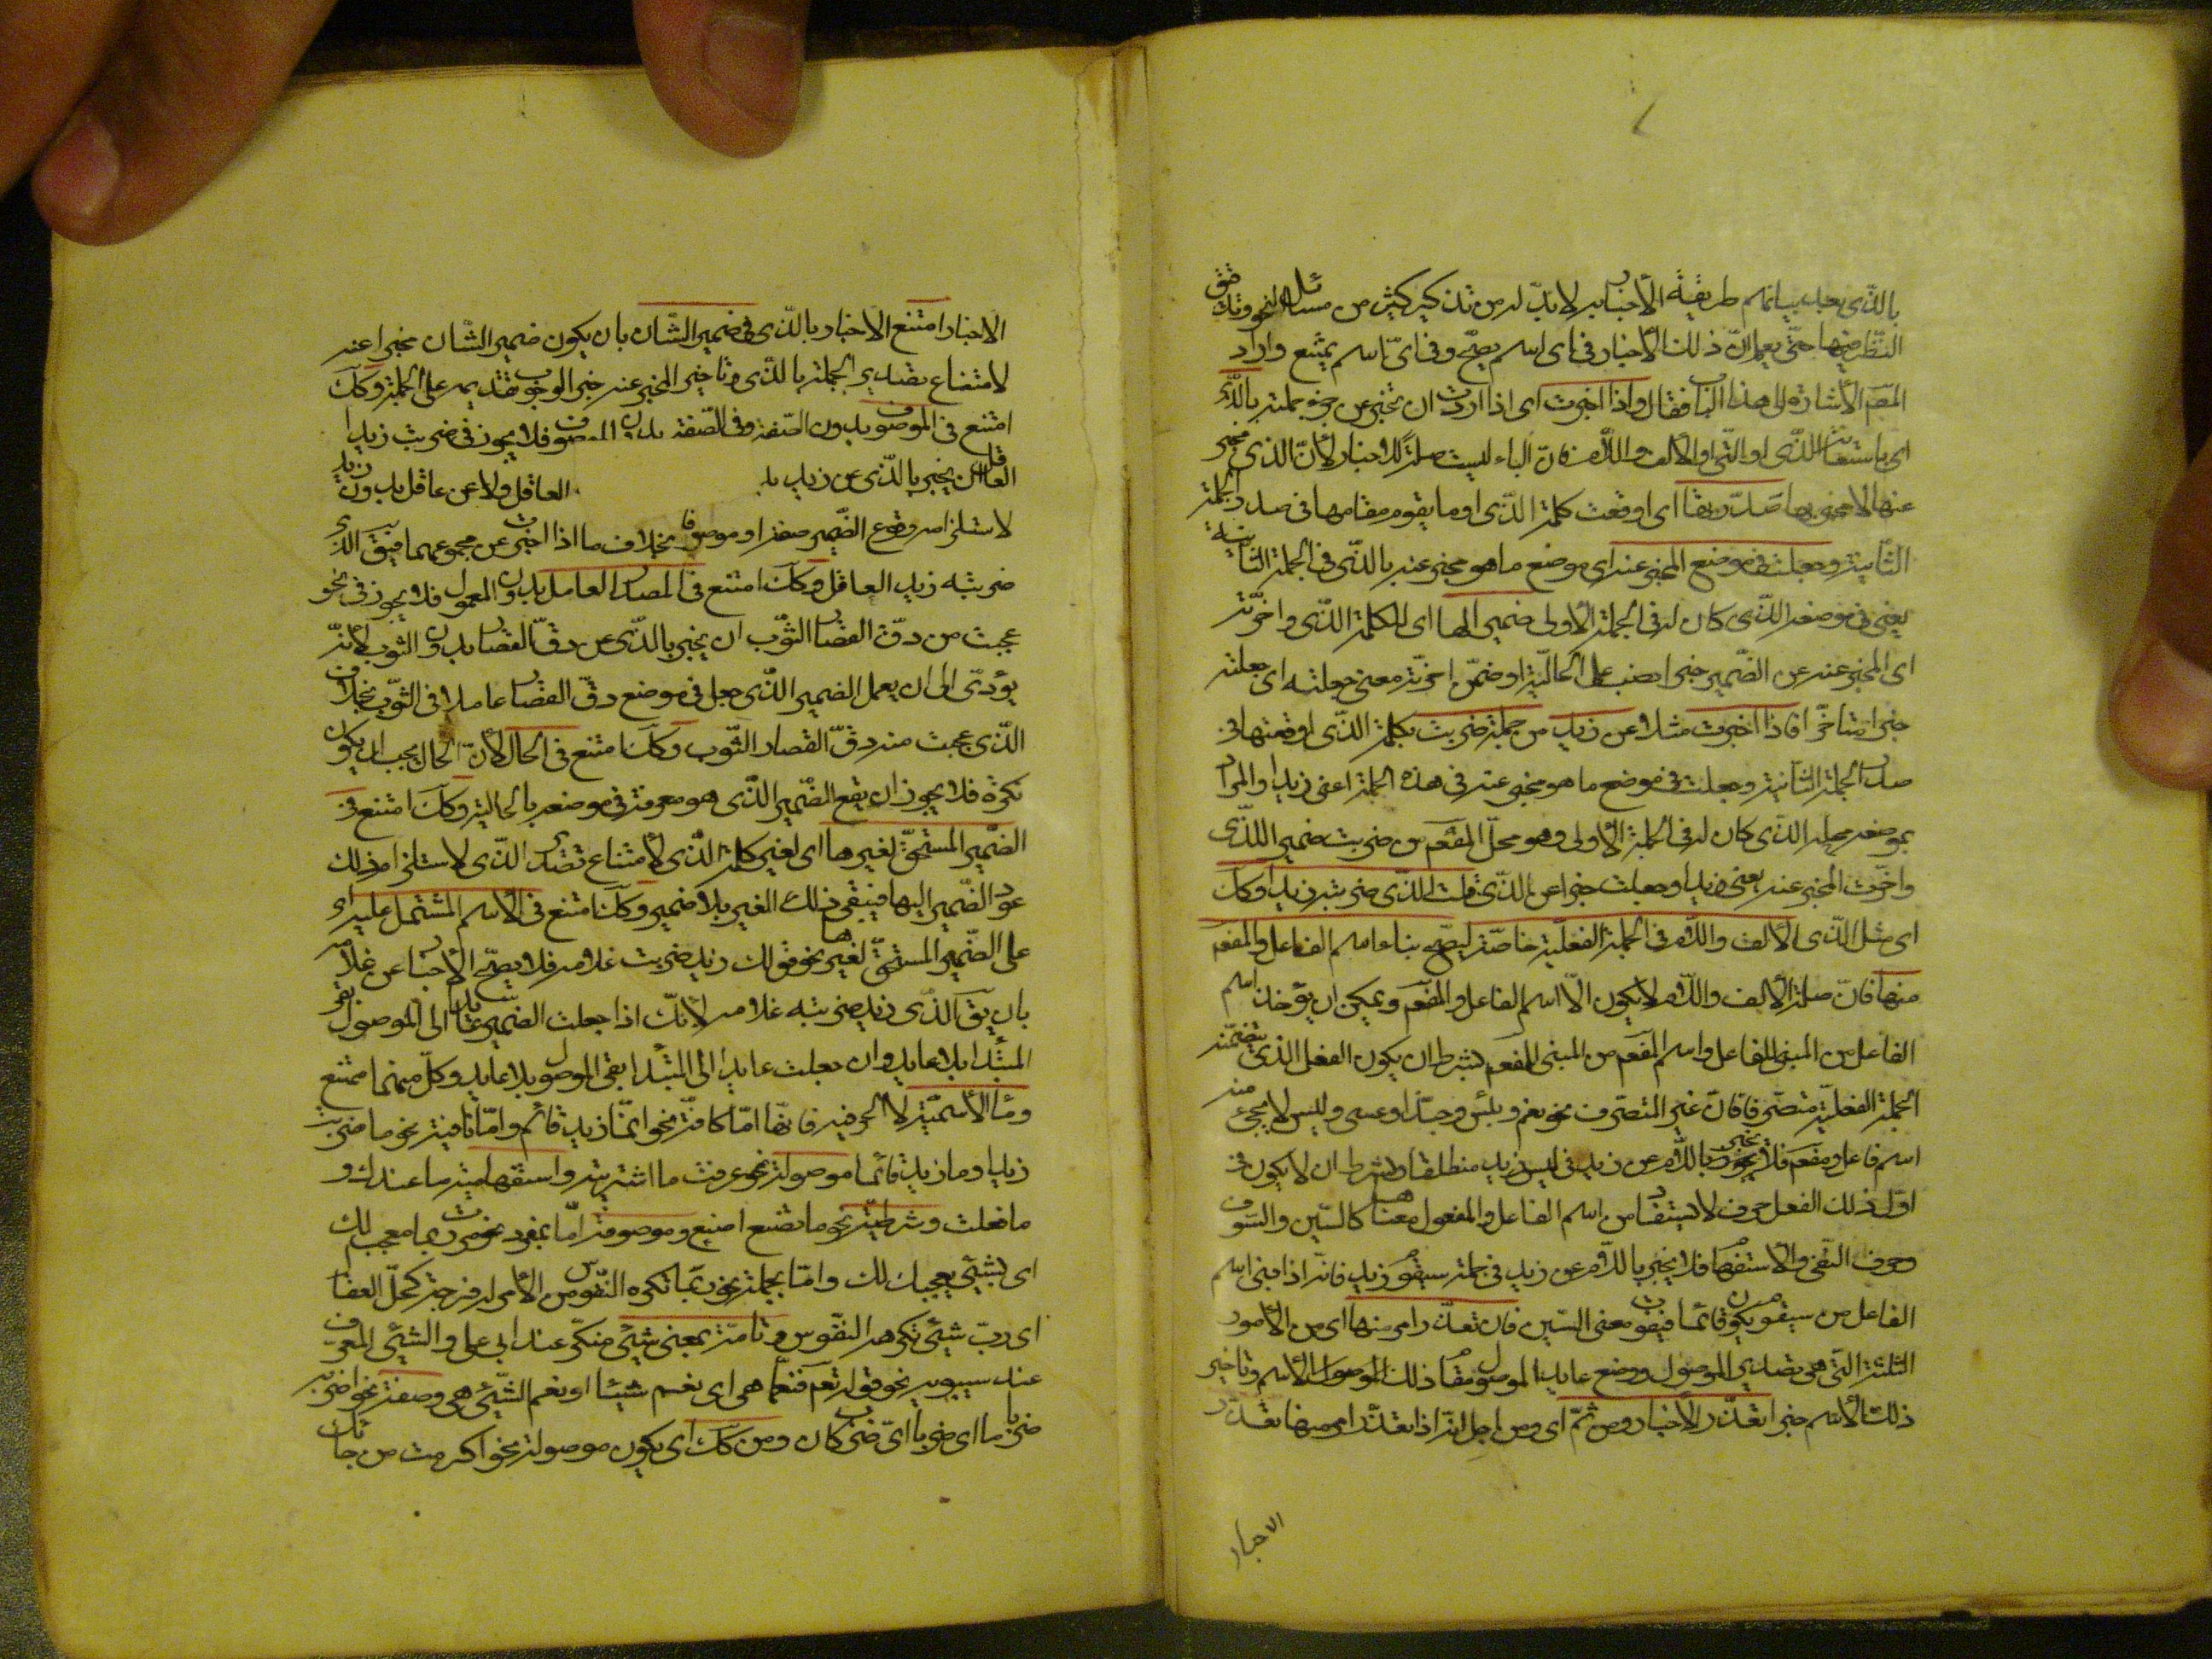 بالذى يعلم بيانهم طريقة الأخبار به لابدّ لهم من تذكير كثير من مسائل النحو وتدقيق
النظر فيها حتى يعلم انّ ذلك الأخبار فى اى اسم يصحّ وفى اىّ اسم يمتنع واراد
المصّ الأشارة الى هذا الباب فقال واذا اخبرت اى اذا اردت ان تخبر عن جزء جملة بالذى
اى باستعانة الذى او التى او الألف واللام فانّ الباء ليست صلة للاخبار لأنّ الذى مخبر
عنها لا مخبر بها صدّرتها اى اوقعت كلمة الذى او ما يقوم مقامها فى صدر الجملة
الثانية وجعلت فى موضع المخبر عنه اى موضع ما هو مخبر عنه بالذى فى الجملة الثانية
يعنى فى موضعه الذى كان له فى الجملة الأولى ضميرا لها اى لكلمة الذى واخّرته
اى المخبر عنه عن الضمير خبرا نصب على الحاليّة او ضمّن اخّرته معنى جعلته اى جعلته
خبرا متاخّرا فاذا اخبرت مثلا عن زيد من جملة ضربت بكلمة الذى اوقعتها فى
صدر الجملة الثانية وجعلت فى موضع ما هو مخبر عنه فى هذه الجملة اعنى زيدا والمراد
بموضعه محله الذى كان له فى الجملة الأولى وهو محلّ المفعم من ضربت ضميرا للذى
واخّرت المخبر عنه يعنى زيدا وجعلت خبرا عن الذى قلت الذى ضربته زيد وكك
اى مثل الذى الألف واللام فى الجملة الفعلية خاصّة ليصحّ بناء اسم الفاعل والمفعم
منها فانّ صلة الألف واللام لا يكون الّا اسم الفاعل والمفعم ويمكن ان يؤخذ اسم
الفاعل من المبنى للفاعل واسم المفعم من المبنى للمفعم بشرط ان يكون الفعل الذى يتضمّنه
الجملة الفعليّة متصرّفا فانّ غير المتصرّف نحو نعم وبئس وحبّذا وعسى وليس لا يجئ منه
اسم فاعل ومفعم فلا يخبر باللّام عن زيد فى ليس زيد منطلقا وبشرط ان لا يكون فى
اوّل ذلك الفعل حرف لا يستفاد من اسم الفاعل والمفعول معناها كالسّين والسّوف
وحرف النّفى والأستفهام فلا يخبر باللّام عن زيد فى جملة سيقوم زيد فانّه اذا بنى اسم
الفاعل من سيقوم يكون قائما فيفوت معنى السّين فان تعذّر امر منها اى من الأمور
الثلثة التى هى تصدير الموصول ووضع عايد الموصول مقام ذلك الأسم وتاخير
ذلك الأسم خبرا تعذّر الأخبار ومن ثمّ اى ومن اجل انّه اذا تعذّر امر منها تعذّر
الاخبار
الاخبار امتنع الاخبار بالذى فى ضمير الشّان بان يكون ضمير الشّان مخبرا عنه
لامتناع تصدير الجملة بالذى وتاخير المخبر عنه خبرا لوجوب تقديمه على الجملة وكك
امتنع فى الموصوف بدون الصّفة وفى الصّفة بدون الموصوف فلا يجوز فى ضربت زيدا
العاقل ان يخبر بالذى عن زيد بد العاقل ولا عن عاقل بدون زيد
لاستلزامه وقوع الضّمير صفة او موصوفا بخلاف ما اذا اخبرت عن مجموعهما فيق الذى
ضربته زيد العاقل وكك امتنع فى المصدر العامل بدون المعمول فلا يجوز فى نحو
عجبت من دقّ القصار الثّوب ان يخبر بالذى عن دقّ القصار بدون الثوب لأنّه
يؤدّى الى ان يعمل الضمير الذى جعل فى موضع دقّ القصار عاملا فى الثّوب بخلاف
الذى عجبت منه دقّ القصار الثّوب وكك امتنع فى الحال لأنّ الحال يجب ان يكون
نكرة فلا يجوز ان يقع الضّمير الذى هو معرفة فى موضعه بالحالية وكك امتنع فى
الضّمير المستحقّ لغيرها اى لغير كلمة الذى لأمتناع تصدير الذى لاستلزام ذلك
عود الضّمير اليها فيبقى ذلك الغير بلا ضمير وكك امتنع فى الأسم المشتمل عليه اى
على الضّمير المستحقّ لغيرها نحو قولك زيد ضربت غلامه فلا يصحّ الأخبار عن غلامه
بان يق الذى زيد ضربته غلامه لأنّك اذا جعلت الضمير عايدا الى الموصول بقى
المبتدا بلا عايد وان جعلت عايدا الى المبتدا بقى الموصول بلا عايد وكلّ منهما ممتنع
وما الأسميّة لا الحرفية فانها امّا كافّة نحو انّما زيد قائم وامّا نافية نحو ما ضربت
زيدا وما زيد قائما موصولة نحو عرفت ما اشتريته واستفهامية ما عندك و
ما فعلت وشرطيّة نحو ما تصنع اصنع وموصوفة امّا بمفرد نحو مررت بما معجب لك
اى بشيئ يعجبك لك وامّا بجملة نحو ربّما تكره النّفوس من الأمر له فرجة كحلّ العقال
اى ربّ شيئ تكرهه النفوس وتامّة بمعنى شيئ منكّر عند ابى على والشيئ المعرّف
عند سيبويه نحو قوله تعم فنعمّا هى اى نعم شيئا او نعم الشّيئ هى وصفة نحو اضربه
ضربا ما اى ضربا اىّ ضرب كان ومن كك اى يكون موصولة نحو اكرمت من جائك